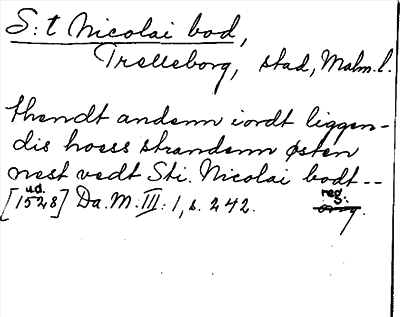 S:t Nicolai bod,
Trelleborg, stad, Malm.l.
thendt andenn iordt liggen-
dis hoess strandenn østen
nest vedt Sti. Nicolai bodt--
[u.d. 1528] Da.M. III: 1, s. 242. reg. orig.